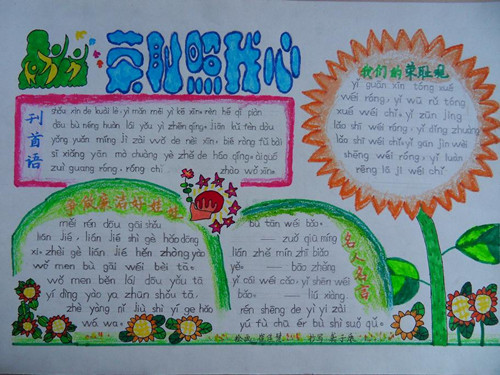 荣耻照我心
刊首语
shǒu xīn de kuài lè, yì mǎn měi yì kē xīn. rèn hé qì piàn
dōu bù néng huàn lái yǒu yì zhēn qíng. jiān kǔ fèn dòu
yǒng yuǎn míng jì zài wǒ de nèi xīn, bié ràng fǔ bài
sī xiǎng yān mò chuàng yè zhě de háo qíng, ài guó
zuì guāng róng, róng chǐ zhào wǒ xīn.
我们的荣耻观
yǐ guān xīn tóng xué
wéi róng, yǐ wǔ rǔ tóng
xué wéi chǐ. yǐ zūn jìng
lǎo shī wéi róng, yǐ dǐng zhuàng
lǎo shī wéi chǐ. yǐ gān jìn wèi
shēng wéi róng, yǐ luàn
rēng lā jī wéi chǐ
争做廉洁好娃娃
měi rén dōu gāi shǒu
lián jié, lián jié shì gè hǎo dōng
xi. zhèi gè lián jié hěn zhòng yào
wǒ men bù gāi wéi bèi tā.
wǒ men běn lái dōu yǒu tā
yí dìng yào yǎ zhūn shǒu tā.
zhè yàng nǐ jiù shì yí gè hǎo
wá wa.
名人名言
bù tān wéi bǎo.
—— zuǒ qiū míng
lián zhě mín zhī biǎo
yě. —— bāo zhěng
yǐ cái wéi cǎo, yǐ shēn wéi
bǎo. —— liú xiàng.
rén shēng dé yì yí zài
yú fù chū ér bú shì suǒ qǔ.